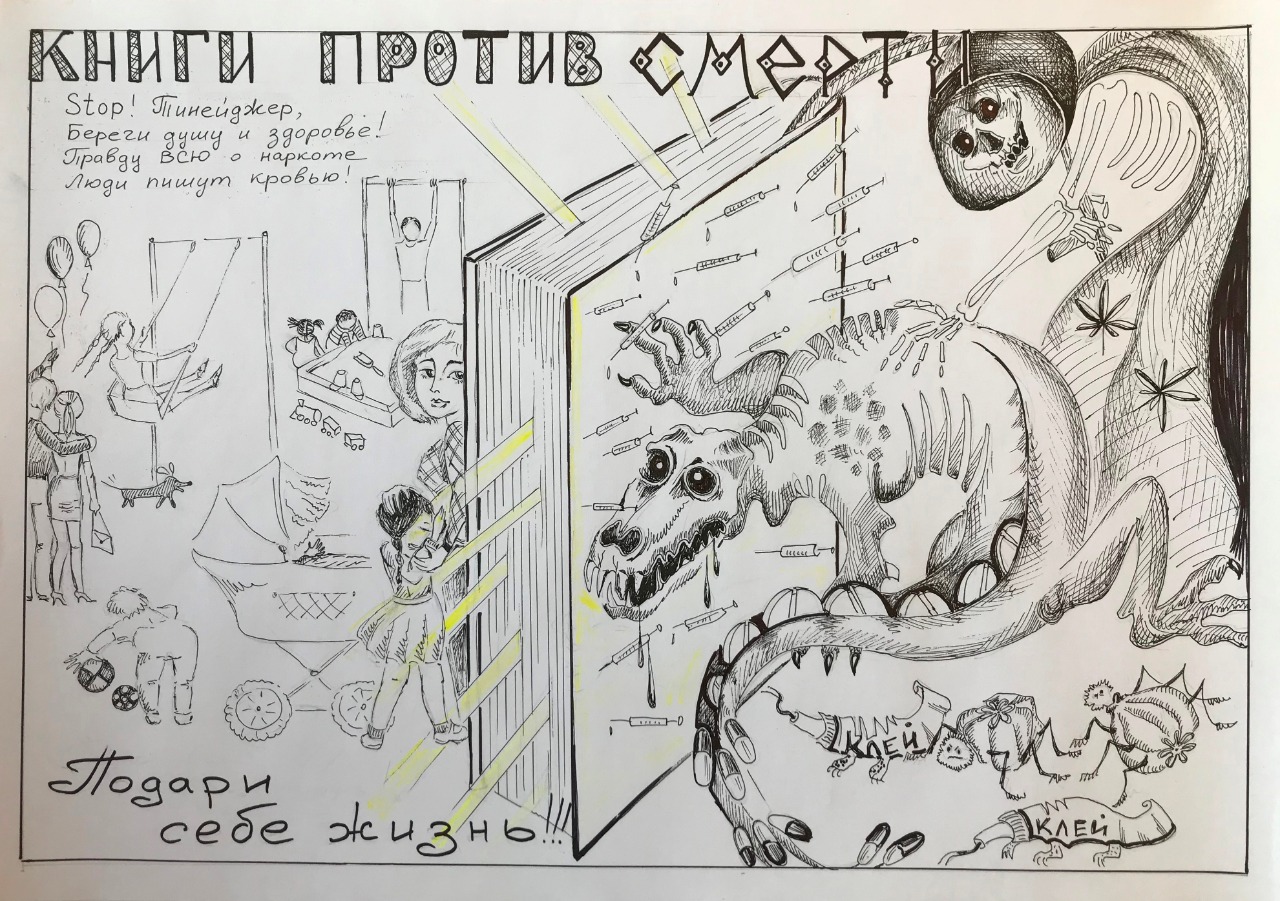 КНИГИ ПРОТИВ СМЕРТИ
Stop! Тинейджер,
Береги душу и здоровье!
Правду ВСЮ о наркоте
Люди пишут кровью!
КЛЕЙ
КЛЕЙ
Подари
себе жизнь!!!